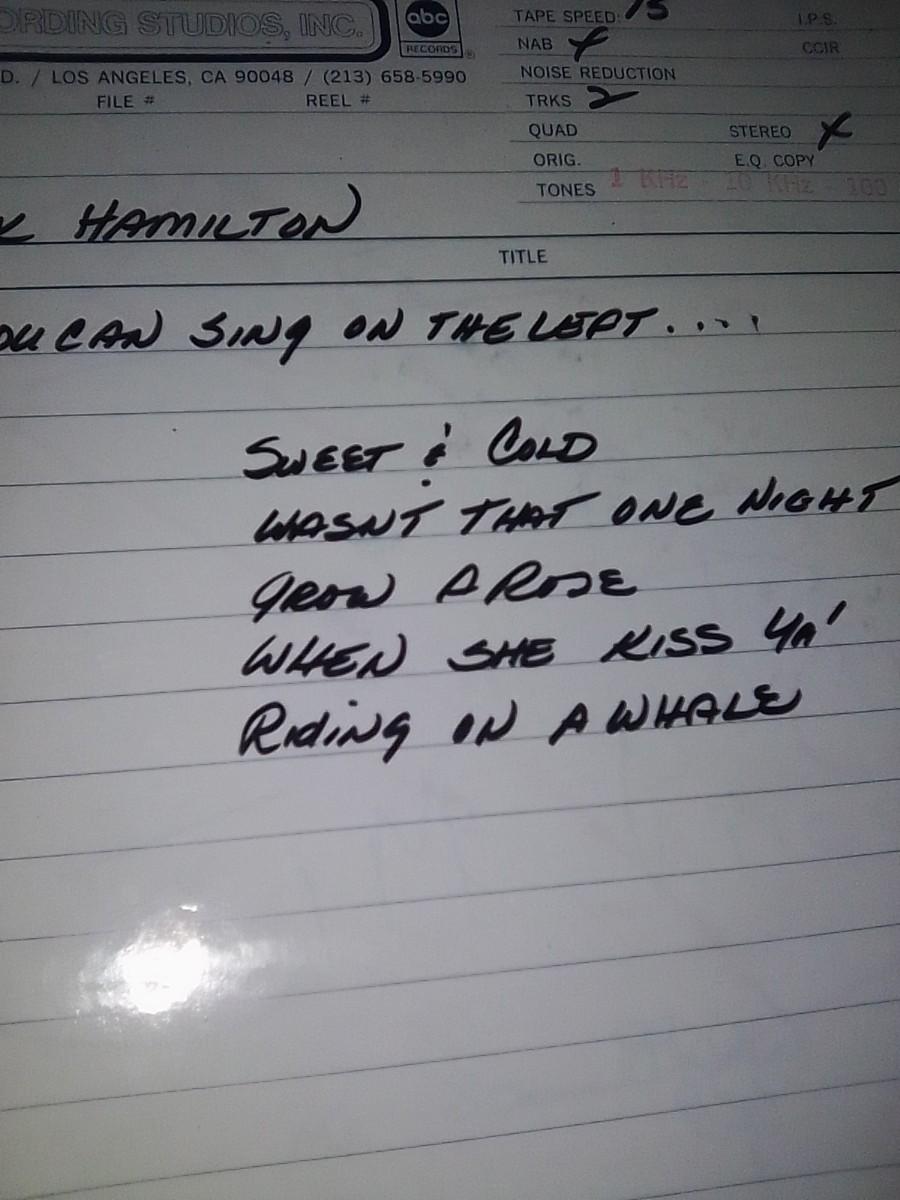 ORDING STUDIOS, INC.
abc
RECORDS ®
D. / LOS ANGELES, CA 90048 / (213) 658-5990
FILE # REEL #
TAPE SPEED: 15 I.P.S.
NAB X CCIR
NOISE REDUCTION
TRKS 2
QUAD STEREO X
ORIG. E.Q. COPY
TONES 1 KHz - 10 KHz - 100
HAMILTON
TITLE
OU CAN SING ON THE LEFT....
SWEET & COLD
WASNT THAT ONE NIGHT
GROW A ROSE
WHEN SHE KISS YA'
RIDING ON A WHALE